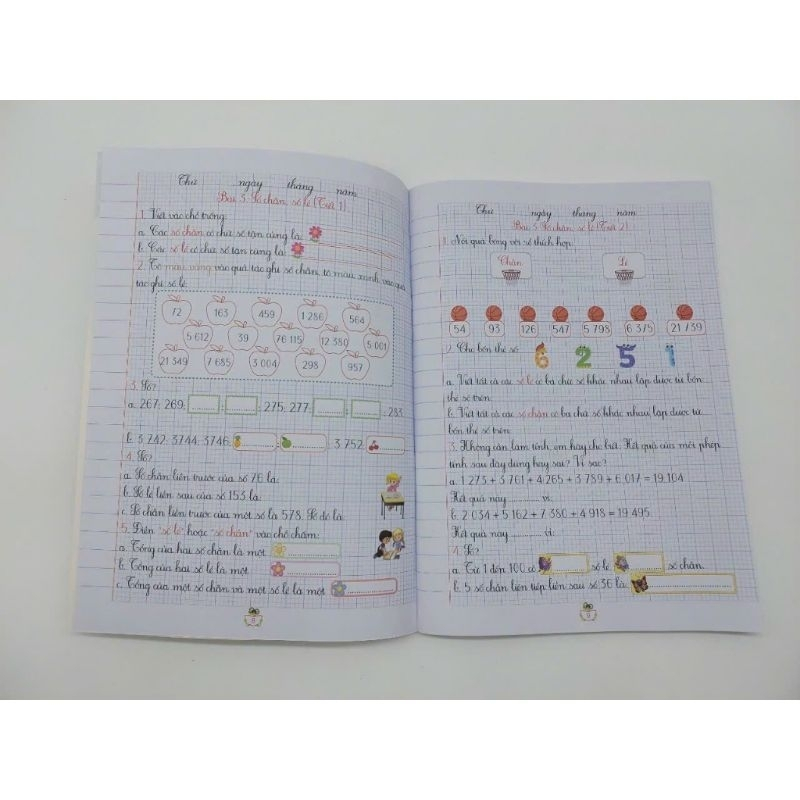 Thứ ngày tháng năm
Bài 3. Số chẵn, số lẻ (Tiết 1)
1. Viết vào chỗ trống:
a. Các số chẵn có chữ số tận cùng là:
b. Các số lẻ có chữ số tận cùng là:
2. Tô màu vàng vào quả táo ghi số chẵn, tô màu xanh vào quả
táo ghi số lẻ.
72 163 459 1 286 564
5 612 39 76 115 12 380 5 001
21 349 7 685 3 004 298 957
3. Số?
a. 267; 269; ............ ; ............ ; 275; 277; ............ ; ............ ; 283
b. 3 742; 3744; 3746; ............ ; ............ ; 3 752; ............
4. Số?
a. Số chẵn liền trước của số 76 là:
b. Số lẻ liền sau của số 153 là:
c. Số chẵn liền trước của một số là 578. Số đó là:
5. Điền "số lẻ" hoặc "số chẵn" vào chỗ chấm:
a. Tổng của hai số chẵn là một ............
b. Tổng của hai số lẻ là một ............
c. Tổng của một số chẵn và một số lẻ là một ............
8
Thứ ngày tháng năm
Bài 3. Số chẵn, số lẻ (Tiết 2)
1. Nối quả bóng với số thích hợp:
Chẵn Lẻ
54 93 126 547 5 798 6 375 21 739
2. Cho bốn thẻ số: 6 2 5 1
a. Viết tất cả các số lẻ có ba chữ số khác nhau lập được từ bốn
thẻ số trên:
b. Viết tất cả các số chẵn có ba chữ số khác nhau lập được từ
bốn thẻ số trên:
3. Không cần làm tính, em hãy cho biết: Kết quả của mỗi phép
tính sau đây đúng hay sai? Vì sao?
a. 1 273 + 3 761 + 4 265 + 3 789 + 6 017 = 19 104
Kết quả này ............ vì:
b. 2 034 + 5 162 + 7 380 + 4 918 = 19 495
Kết quả này ............ vì:
4. Số?
a. Từ 1 đến 100 có ............ số lẻ, ............ số chẵn.
b. 5 số chẵn liên tiếp liền sau số 36 là ............
9